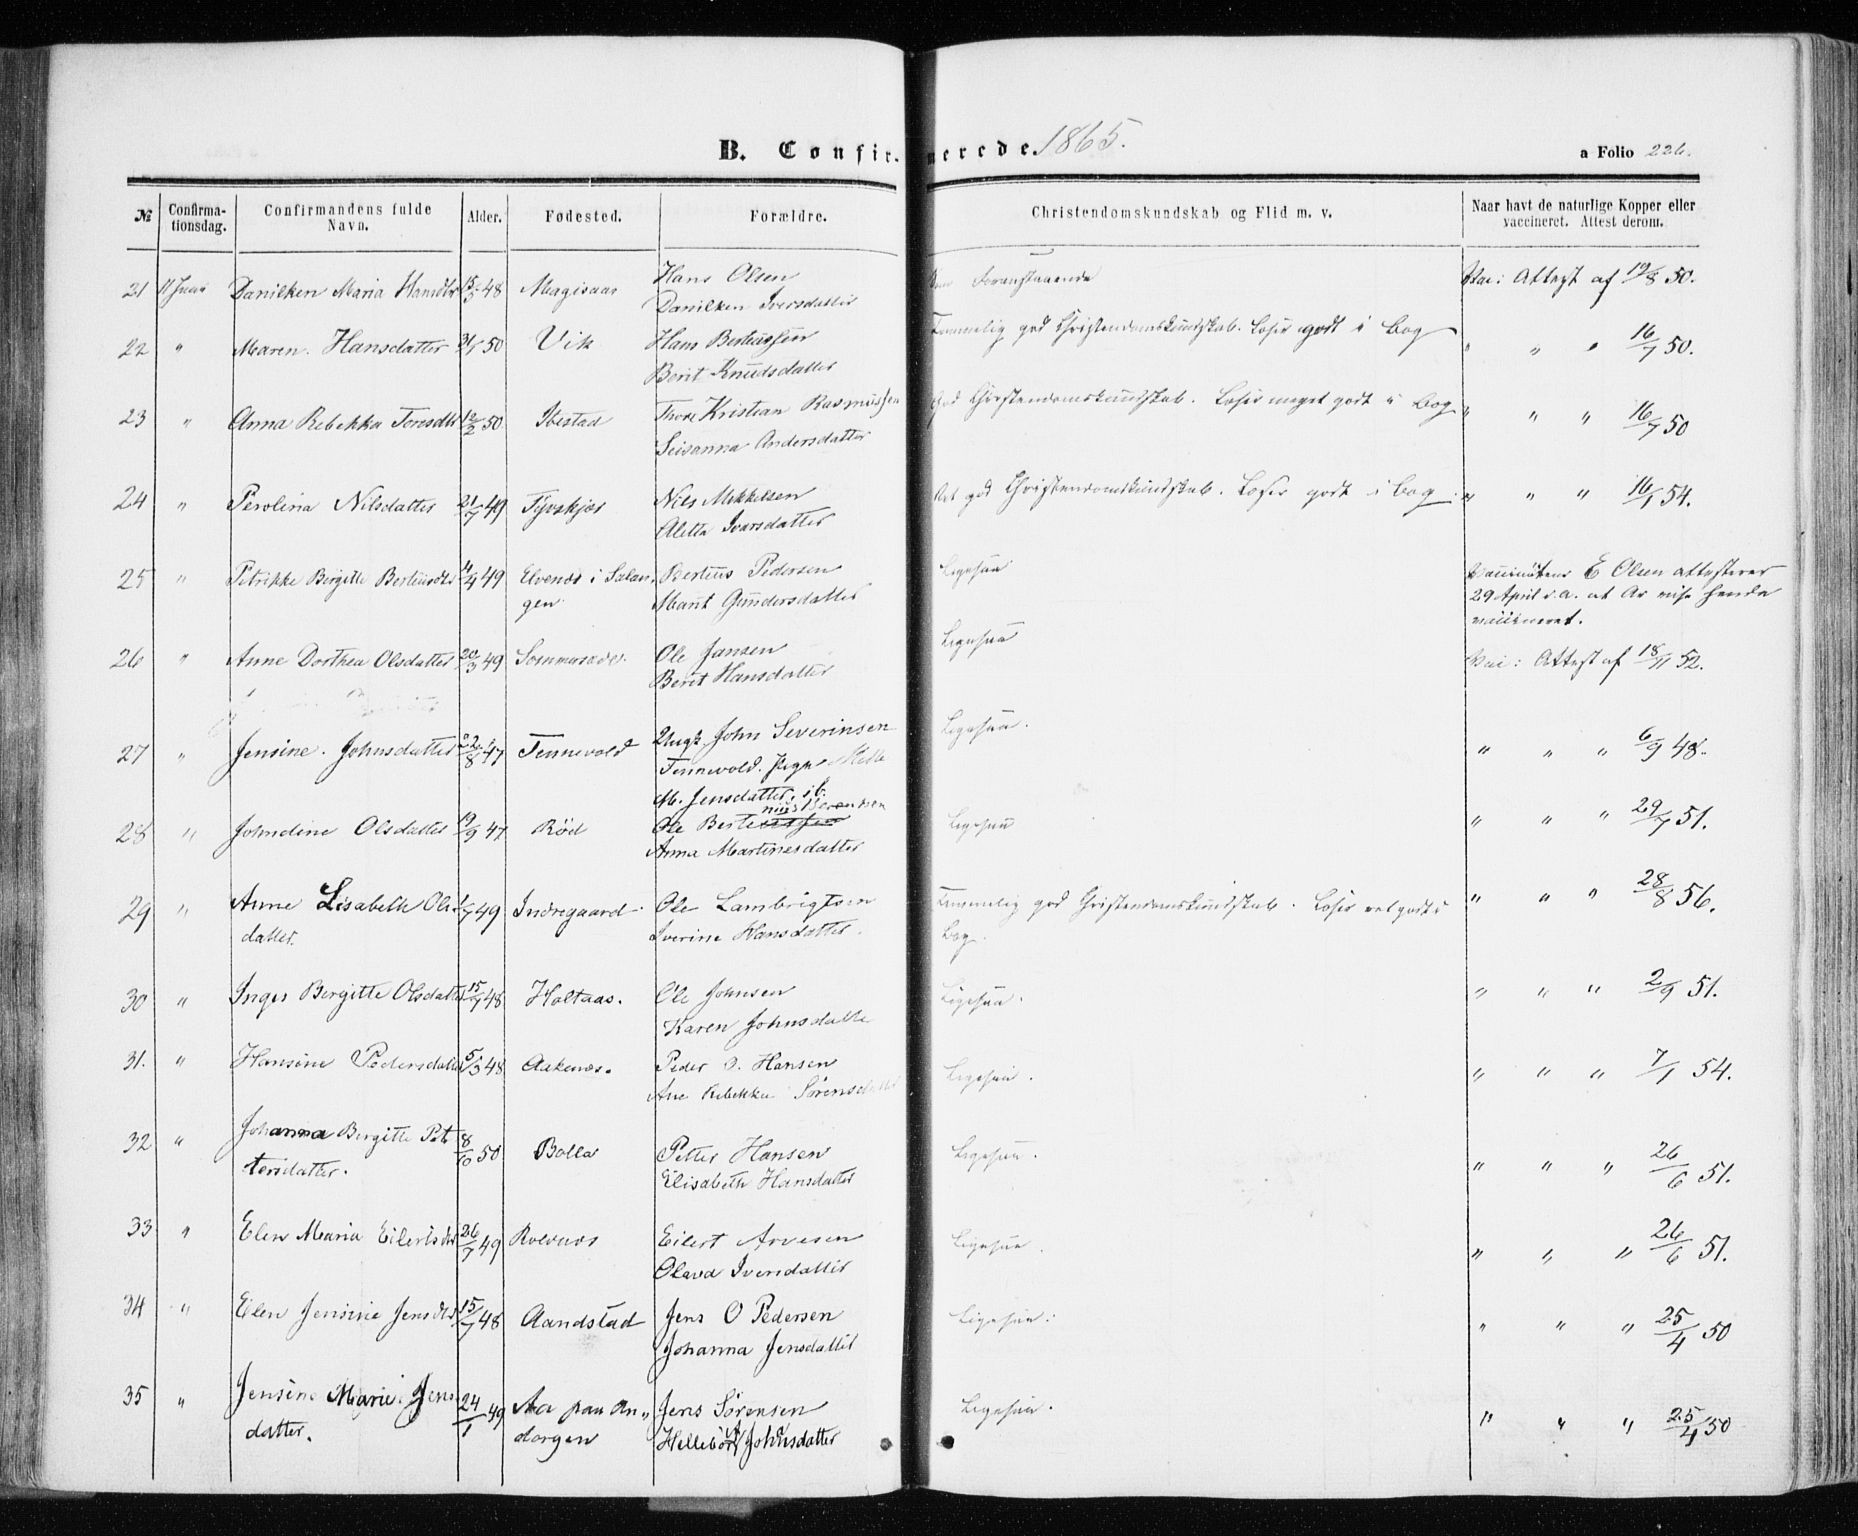 B. Confirmerede. 1865.
a Folio 226.
№ Confirmationsdag. Confirmandens fulde Navn. Alder. Fødested. Forældre. Christendomskundskab og Flid m. v. Naar havt de naturlige Kopper eller vaccineret. Attest derom.
21 11 Juni Danilken Maria Hansdtr 15/5 48 Magisaas Hans Olsen Foranstaaende Vac: Attest af 19/8 50.
Danilken Iversdatter
22 " Maren Hansdatter 50 Vik Hans Berteussen Temmelig god Christendomskundskab. Læser godt i Bog " " " 16/7 50.
Berit Knudsdatter
23 " Anna Rebekka Toresdtr 12/2 50 Ibestad Thore Kristian Rasmussen God Christendomskundskab. Læser meget godt i Bog " " " 16/7 50
Seisanna Andersdatter
24 " Perolina Nilsdatter 21/7 49 Tyvskjær Nils Mikkelsen god Christendomskundskab. Læser godt i Bog " " " 16/1 54.
Aletta Ivarsdatter
25 " Petrikke Bergitte Berteusdtr 4/4 49 Elvenæs i Salan- Berteus Pedersen Ligesaa Vaccinøren E Olsen attesterer
gen Marit Gundersdatter 29 April d.a. at have hende
vaccineret.
26 " Anne Dorthea Olsdatter 20/3 49 Sommersæde. Ole Jansen Ligesaa Vac: Attest af 18/11 52.
Berit Hansdatter
27 " Jensine. Johnsdatter 22/8 47 Tennevold Ungk John Severinsen Ligesaa. " " " 6/9 48.
Tennevold. Pige Mette
M. Jensdatter. ib.
28 " Johndine Olsdatter 19/9 47 Rød Ole Berteussen nius Berentsen Ligesaa " " " 29/7 51.
Anna Martinesdatter
29 " Anne Lisabeth Ols- 1/7 49 Indregaard Ole Lambrigtsen Temmelig god Christendomskundskab. Læser velgodt i " " " 28/8 56.
datter. Iverine Hansdatter. Bog.
30 " Inger Bergitte Olsdatter 15/7 48 Holtaas. Ole Johnsen Ligesaa. " " " 2/9 51.
Karen Johnsdatte
31. " Hansine Pedersdatter 5/3 48 Aakenæs. Peder O. Hansen Ligesaa. " " " 7/1 54.
Ane Rebekka Sørensdatter
32 " Johanna Bergitte Pet- 8/10 50 Bolla Petter Hansen Ligesaa. " " " 26/6 51.
tersdatter. Elisabeth Hansdatter
33 " Elen Maria Eilertsdtr 26/7 49 Rolvnæs Eilert Arvesen Ligesaa. " " " 26/6 51.
Olava Iversdatter
34 " Elen Jensine Jensdtr 15/7 48 Aandstad Jens O Pedersen Ligesaa. " " " 25/4 50
Johanna Jensdatter
35 " Jensine Marie Jens- 24/1 49 Aa paa An- Jens Sørensen Ligesaa. " " " 25/4 50
datter. dorgen Hellebor Johnsdatter